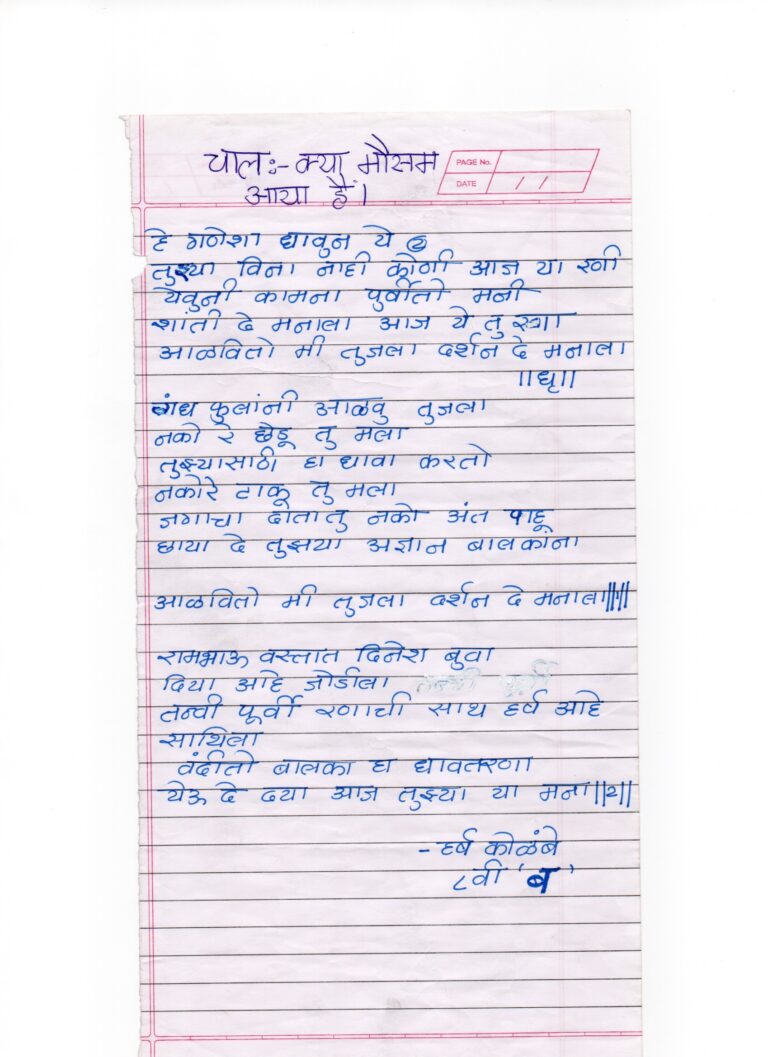 चाल:- क्या मौसम
आया है।
PAGE No.
DATE / /
हे गणेशा धावुन ये २
तुझ्या विना नाही कोणी आज या रणी
येवुनी कामना पुर्वीतो मनी
शांती दे मनाला आज ये तु
आळवितो मी तुजला दर्शन दे मनाला
॥धृ॥
गंध फुलांनी आळवु तुजला
नको रे छेडू तु मला
तुझ्यासाठी हा धावा करतो
नकोरे टाकू तु मला
जगाचा दाता तु नको अंत पाहू
छाया दे तुझया अज्ञान बालकांना
आळवितो मी तुजला दर्शन दे मनाला॥१॥
रामभाऊ वस्तात दिनेश बुवा
दिया आहे जोडीला
तन्वी पूर्वी रणाची साथ हर्ष आहे
साथिला
वंदीतो बालका हा धावतरणा
येऊ दे दया आज तुझ्या या मना॥२॥
- हर्ष कोळंबे
८वी 'ब'